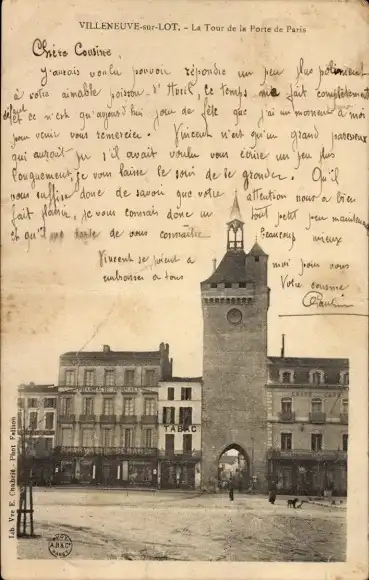 VILLENEUVE-sur-LOT. - La Tour de la Porte de Paris
Chère Cousine,
J'aurais voulu pouvoir répondre un peu plus poliment
à votre aimable poisson d'Avril, le temps m'a fait complètement
défaut
et ce n'est qu'aujourd'hui jour de fête que j'ai un moment à moi
pour venir vous remercier. Vincent n'est qu'un grand paresseux
qui aurait pu s'il avait voulu vous écrire un peu plus
longuement, je vous laisse le soin de le gronder. Qu'il
vous suffise donc de savoir que votre attention nous a bien
fait plaisir, je vous connais donc un tout petit peu maintenant
et qu'il me tarde de vous connaître beaucoup mieux
Vincent se joint à moi pour vous
embrasser à tous
Votre cousine
PHARMACIE
TABAC
Lib. Vve E. Chabrié - Phot.